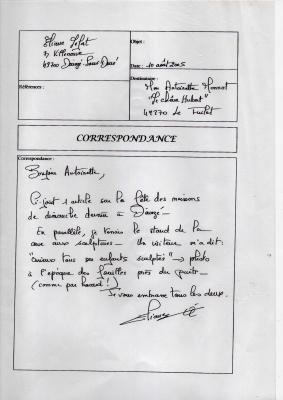 Eliane
49700 Douçé Sous Doué
Objet :
Date : 10 août 2005
Destinataire :
Mme Antoinette
"Le chêne Hubert"
49270 Le Fuilet
Références :
CORRESPONDANCE
Correspondance :
Bonjour Antoinette,
Ci-joint 1 article sur la fête des moissons
de dimanche dernier à
En parallèle, je tenais le stand de la
cave aux sculptures - Un visiteur m'a dit :
tous ses enfants sculptés" → photo
à l'époque des fouilles près du puits -
(comme par hasard !)
Je vous embrasse tous les deux.
Eliane